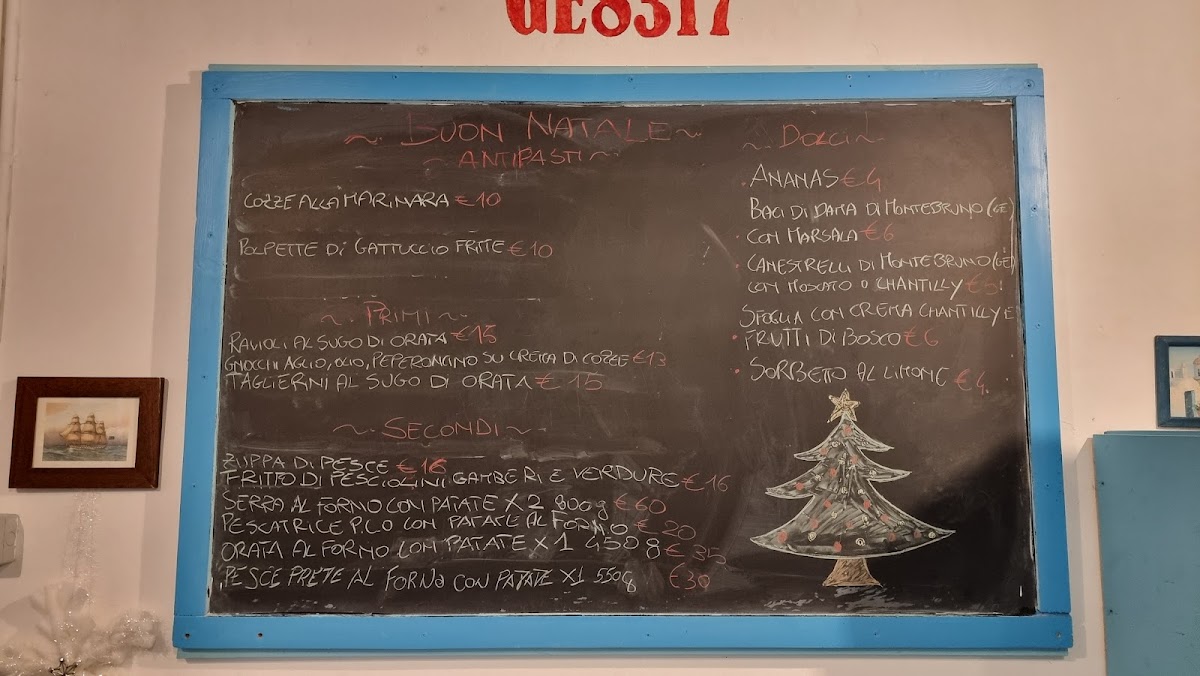 GE8317
~ BUON NATALE ~
~ ANTIPASTI ~
COZZE ALLA MARINARA €10
POLPETTE DI GATTUCCIO FRITTE €10
~ PRIMI ~
RAVIOLI AL SUGO DI ORATA €15
GNOCCHI AGLIO, OLIO, PEPERONCINO SU CREMA DI COZZE €13
TAGLIERINI AL SUGO DI ORATA € 15
~ SECONDI ~
ZUPPA DI PESCE €16
FRITTO DI PESCIOLINI, GAMBERI E VERDURE €16
SERRA AL FORNO CON PATATE X 2 800g €60
PESCATRICE P.LO CON PATATE AL FORNO € 20
ORATA AL FORNO CON PATATE X 1 450g € 35
PESCE PRETE AL FORNO CON PATATE X1 550g €30
~ DOLCI ~
• ANANAS €4
BACI DI DAMA DI MONTEBRUNO (GE)
• CON MARSALA €6
• CANESTRELLI DI MONTEBRUNO (GE)
CON MOSCATO O CHANTILLY
SFOGLIA CON CREMA CHANTILLY E
• FRUTTI DI BOSCO €6
• SORBETTO AL LIMONE €4